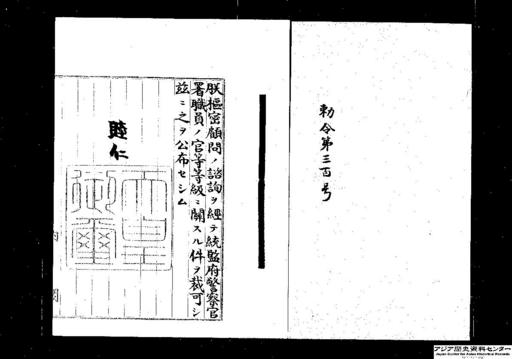 勅令第三百号
朕樞密顧問ノ諮詢ヲ經テ統監府警察官
署職員ノ官等等級ニ關スル件ヲ裁可シ
玆ニ之ヲ公布セシム
睦仁
天皇
御璽
内閣
アジア歴史資料センター
Japan Center for Asian Historical Records